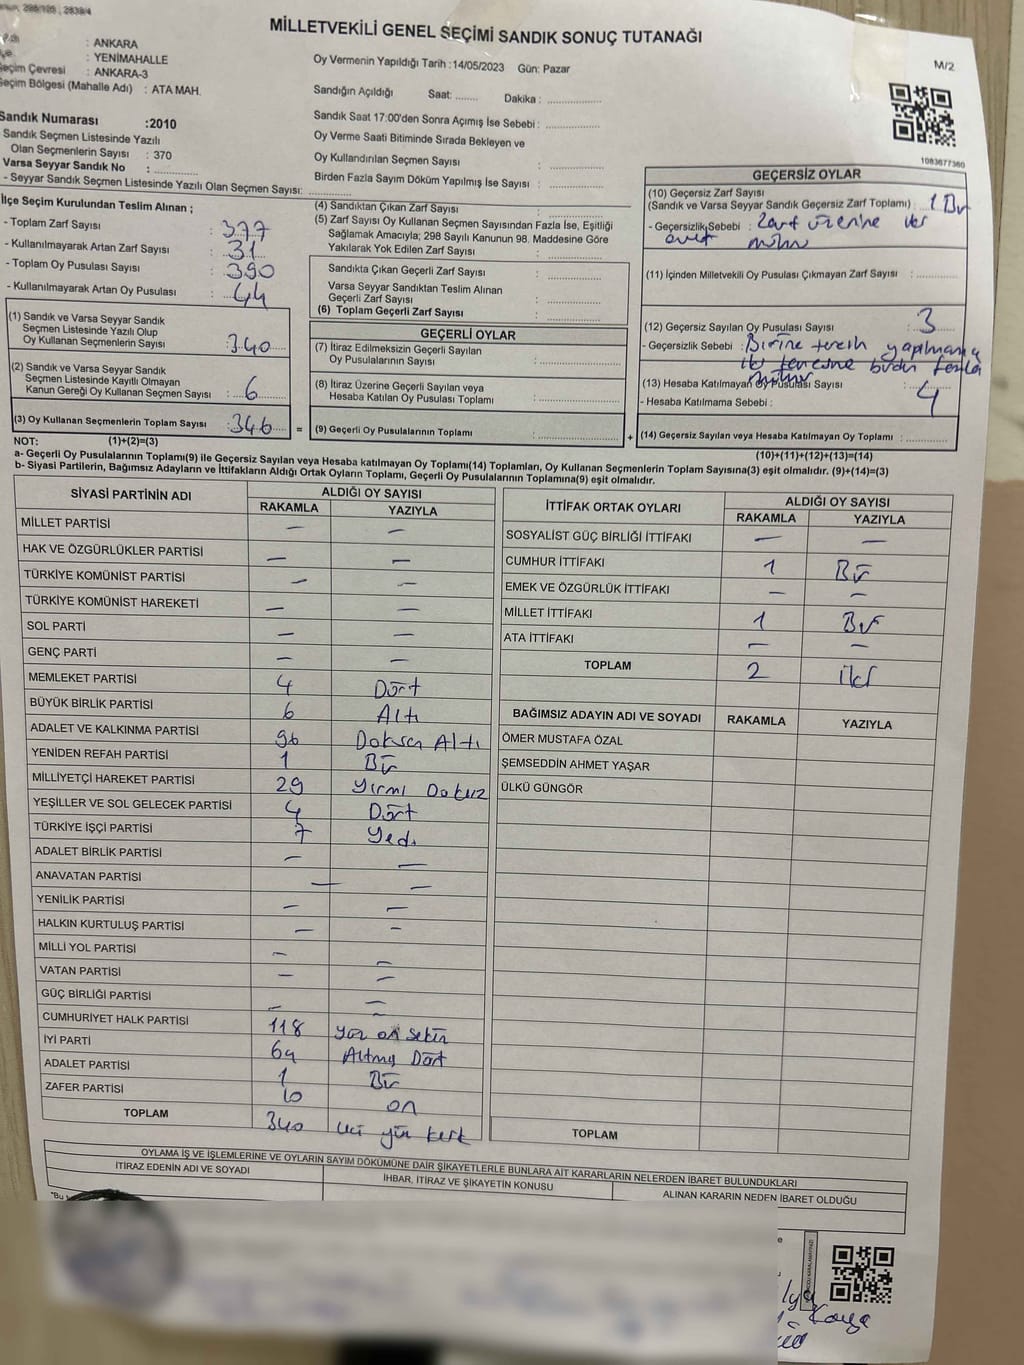 MİLLETVEKİLİ GENEL SEÇİMİ SANDIK SONUÇ TUTANAĞI
M/2
: ANKARA
: YENİMAHALLE
Seçim Çevresi : ANKARA-3
Seçim Bölgesi (Mahalle Adı) : ATA MAH.
Sandık Numarası :2010
Sandık Seçmen Listesinde Yazılı
Olan Seçmenlerin Sayısı : 370
Varsa Seyyar Sandık No :
- Seyyar Sandık Seçmen Listesinde Yazılı Olan Seçmen Sayısı:
Oy Vermenin Yapıldığı Tarih :14/05/2023 Gün: Pazar
Sandığın Açıldığı Saat: Dakika :
Sandık Saat 17:00'den Sonra Açımış İse Sebebi :
Oy Verme Saati Bitiminde Sırada Bekleyen ve
Oy Kullandırılan Seçmen Sayısı :
Birden Fazla Sayım Döküm Yapılmış İse Sayısı :
1083677360
İlçe Seçim Kurulundan Teslim Alınan ;
- Toplam Zarf Sayısı : 377
- Kullanılmayarak Artan Zarf Sayısı : 31
- Toplam Oy Pusulası Sayısı : 390
- Kullanılmayarak Artan Oy Pusulası : 44
(1) Sandık ve Varsa Seyyar Sandık
Seçmen Listesinde Yazılı Olup
Oy Kullanan Seçmenlerin Sayısı : 340
(2) Sandık ve Varsa Seyyar Sandık
Seçmen Listesinde Kayıtlı Olmayan
Kanun Gereği Oy Kullanan Seçmen Sayısı : 6
(3) Oy Kullanan Seçmenlerin Toplam Sayısı : 346 =
(4) Sandıktan Çıkan Zarf Sayısı :
(5) Zarf Sayısı Oy Kullanan Seçmen Sayısından Fazla İse, Eşitliği
Sağlamak Amacıyla; 298 Sayılı Kanunun 98. Maddesine Göre
Yakılarak Yok Edilen Zarf Sayısı :
Sandıkta Çıkan Geçerli Zarf Sayısı :
Varsa Seyyar Sandıktan Teslim Alınan
Geçerli Zarf Sayısı :
(6) Toplam Geçerli Zarf Sayısı :
GEÇERLİ OYLAR
(7) İtiraz Edilmeksizin Geçerli Sayılan
Oy Pusulalarının Sayısı :
(8) İtiraz Üzerine Geçerli Sayılan veya
Hesaba Katılan Oy Pusulası Toplamı :
(9) Geçerli Oy Pusulalarının Toplamı : +
GEÇERSİZ OYLAR
(10) Geçersiz Zarf Sayısı
(Sandık ve Varsa Seyyar Sandık Geçersiz Zarf Toplamı) : 1 Bir
- Geçersizlik Sebebi : Zarf üzerine
evet mührü
(11) İçinden Milletvekili Oy Pusulası Çıkmayan Zarf Sayısı :
(12) Geçersiz Sayılan Oy Pusulası Sayısı : 3
- Geçersizlik Sebebi : Birine tercih yapılmamış
iki tanesine birden fazla
mühür
(13) Hesaba Katılmayan Oy Pusulası Sayısı : 4
- Hesaba Katılmama Sebebi :
(14) Geçersiz Sayılan veya Hesaba Katılmayan Oy Toplamı :
NOT: (1)+(2)=(3) (10)+(11)+(12)+(13)=(14)
a- Geçerli Oy Pusulasının Toplamı(9) ile Geçersiz Sayılan veya Hesaba Katılmayan Oy Toplamı(14) Toplamları, Oy Kullanan Seçmenlerin Toplam Sayısına(3) eşit olmalıdır. (9)+(14)=(3)
b- Siyasi Partilerin, Bağımsız Adayların ve İttifakların Aldığı Ortak Oyların Toplamı, Geçerli Oy Pusulalarının Toplamına(9) eşit olmalıdır.
SİYASİ PARTİNİN ADI ALDIĞI OY SAYISI
RAKAMLA YAZIYLA
MİLLET PARTİSİ — —
HAK VE ÖZGÜRLÜKLER PARTİSİ — —
TÜRKİYE KOMÜNİST PARTİSİ — —
TÜRKİYE KOMÜNİST HAREKETİ — —
SOL PARTİ — —
GENÇ PARTİ — —
MEMLEKET PARTİSİ 4 Dört
BÜYÜK BİRLİK PARTİSİ 6 Altı
ADALET VE KALKINMA PARTİSİ 96 Doksan Altı
YENİDEN REFAH PARTİSİ 1 Bir
MİLLİYETÇİ HAREKET PARTİSİ 29 Yirmi Dokuz
YEŞİLLER VE SOL GELECEK PARTİSİ 4 Dört
TÜRKİYE İŞÇİ PARTİSİ 7 Yedi
ADALET BİRLİK PARTİSİ — —
ANAVATAN PARTİSİ — —
YENİLİK PARTİSİ — —
HALKIN KURTULUŞ PARTİSİ — —
MİLLİ YOL PARTİSİ — —
VATAN PARTİSİ — —
GÜÇ BİRLİĞİ PARTİSİ — —
CUMHURİYET HALK PARTİSİ 118 Yüz on sekiz
İYİ PARTİ 64 Altmış Dört
ADALET PARTİSİ 1 Bir
ZAFER PARTİSİ 10 on
TOPLAM 340 üç yüz kırk
İTTİFAK ORTAK OYLARI ALDIĞI OY SAYISI
RAKAMLA YAZIYLA
SOSYALİST GÜÇ BİRLİĞİ İTTİFAKI — —
CUMHUR İTTİFAKI 1 Bir
EMEK VE ÖZGÜRLÜK İTTİFAKI — —
MİLLET İTTİFAKI 1 Bir
ATA İTTİFAKI — —
TOPLAM 2 iki
BAĞIMSIZ ADAYIN ADI VE SOYADI RAKAMLA YAZIYLA
ÖMER MUSTAFA ÖZAL
ŞEMSEDDİN AHMET YAŞAR
ÜLKÜ GÜNGÖR
TOPLAM
OYLAMA İŞ VE İŞLEMLERİNE VE OYLARIN SAYIM DÖKÜMÜNE DAİR ŞİKAYETLERLE BUNLARA AİT KARARLARIN NELERDEN İBARET BULUNDUKLARI
İTİRAZ EDENİN ADI VE SOYADI İHBAR, İTİRAZ VE ŞİKAYETİN KONUSU ALINAN KARARIN NEDEN İBARET OLDUĞU
"Bu